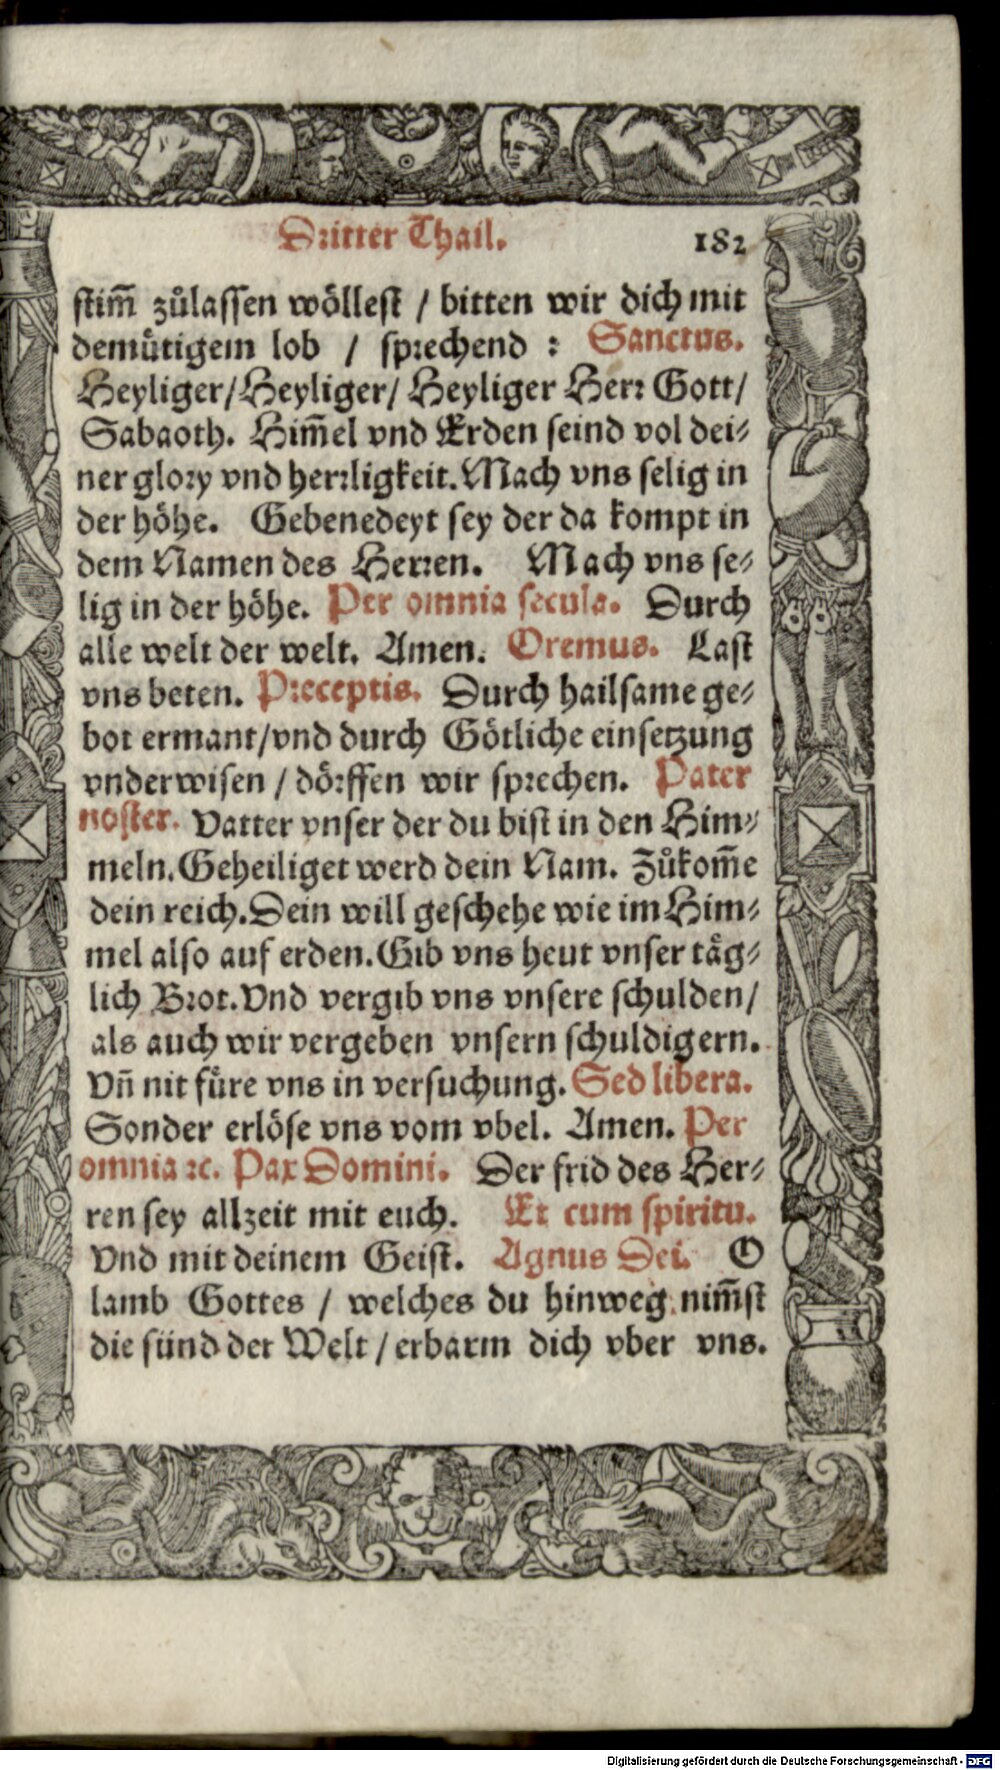 Dritter Thail. 182
stim̃ zůlassen wöllest / bitten wir dich mit
demütigem lob / sprechend : Sanctus.
Heyliger/Heyliger/ Heyliger Herr Gott/
Sabaoth. Him̃el vnd Erden seind vol dei⸗
ner glory vnd herrligkeit. Mach vns selig in
der höhe. Gebenedeyt sey der da kompt in
dem Namen des Herren. Mach vns se⸗
lig in der höhe. Per omnia secula. Durch
alle welt der welt. Amen. Oremus. Last
vns beten. Preceptis. Durch hailsame ge⸗
bot ermant/vnd durch Götliche einsetzung
vnderwisen / dörffen wir sprechen. Pater
noster. Vatter vnser der du bist in den Him⸗
meln. Geheiliget werd dein Nam. Zůkom̃e
dein reich. Dein will geschehe wie im Him⸗
mel also auf erden. Gib vns heut vnser täg⸗
lich Brot. Vnd vergib vns vnsere schulden/
als auch wir vergeben vnsern schuldigern.
Vñ nit füre vns in versuchung. Sed libera.
Sonder erlöse vns vom vbel. Amen. Per
omnia ꝛc. Pax Domini. Der frid des Her⸗
ren sey allzeit mit euch. Et cum spiritu.
Vnd mit deinem Geist. Agnus Dei. O
lamb Gottes / welches du hinweg nim̃st
die sünd der Welt / erbarm dich vber vns.
Digitalisierung gefördert durch die Deutsche Forschungsgemeinschaft - DFG